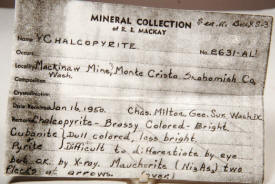 MINERAL COLLECTION
OF R. E. MACKAY
Name YCHALCOPYRITE No. 2631-AL
Occurs
Locality Mackinaw Mine, Monte Cristo Snohomish Co
Wash.
Composition
Crystallization
Date Jan 16, 1950. Chas. Milton, Geo. Sur. Wash. DC.
Remarks Chalcopyrite - Brassy Colored - Bright
Cubanite } Dull colored, less bright
Pyrite } Difficult to differentiate by eye
but ok by X-ray. Maucherite (Ni₃As₂) two
flecks at arrows. (over)